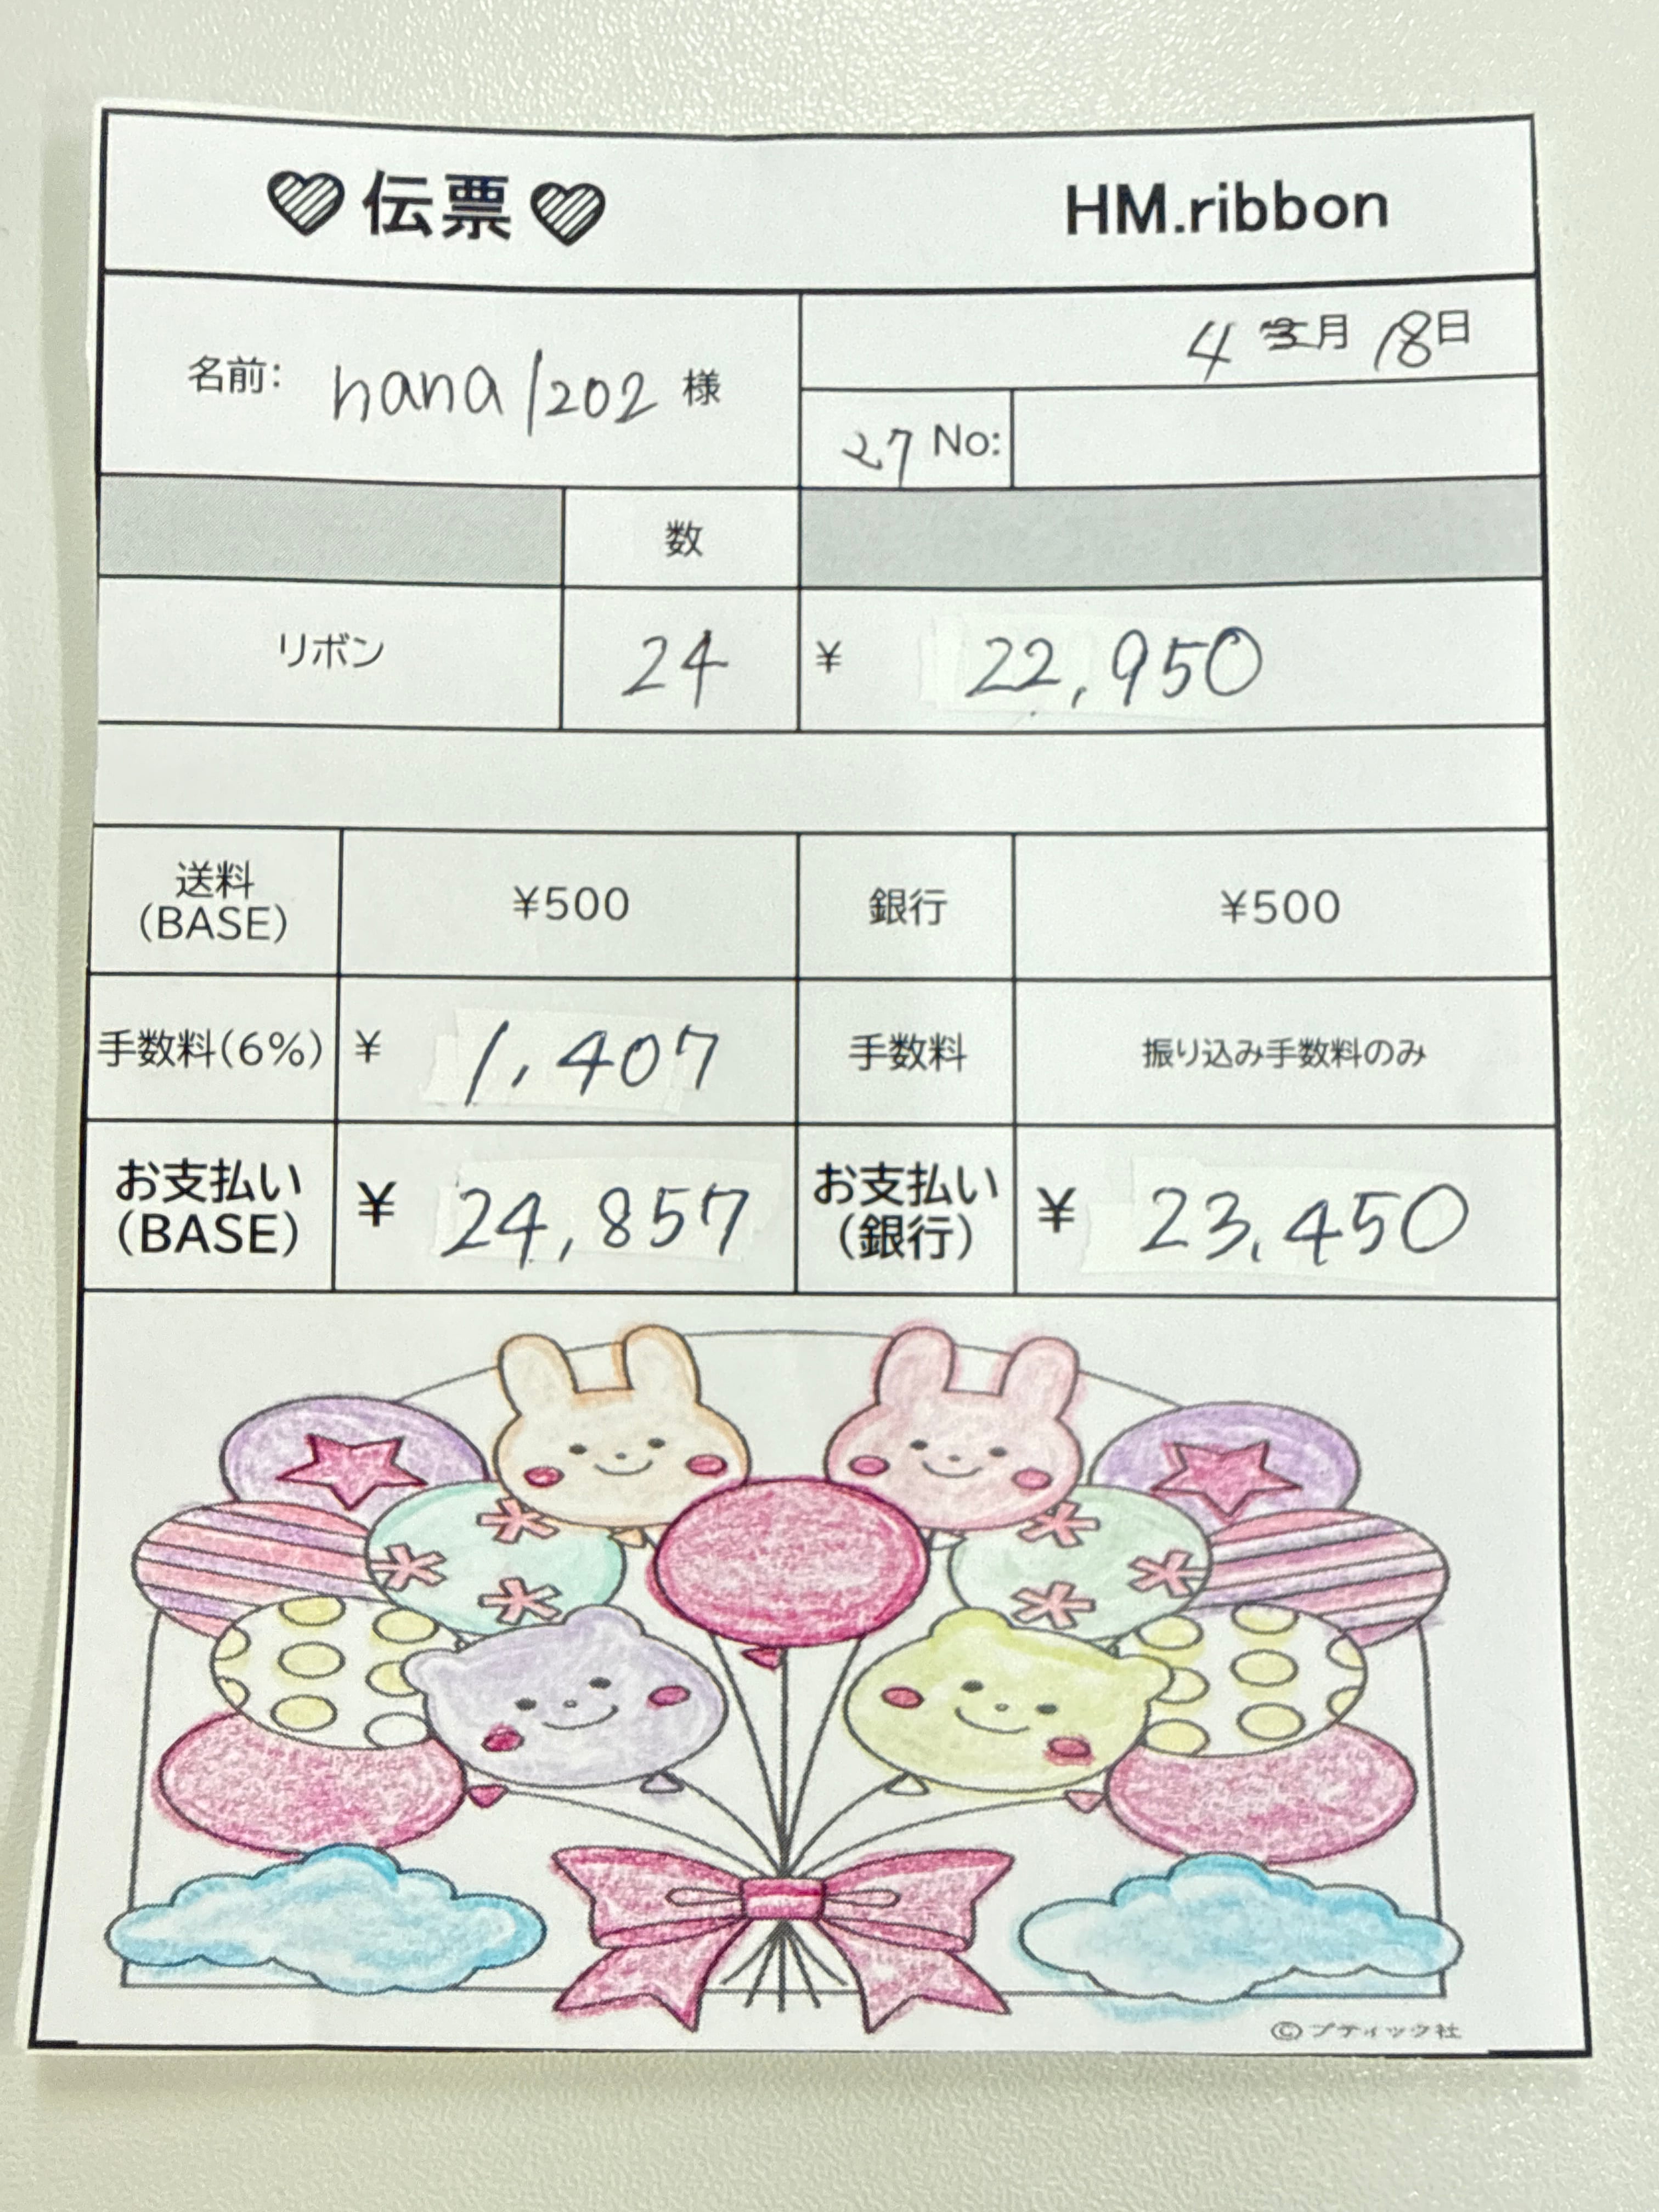 伝票 HM.ribbon
4月18日
名前: hana/202 様
27 No:
数
リボン 24 ¥ 22,950
送料(BASE) ¥500 銀行 ¥500
手数料(6%) ¥ 1,407 手数料 振り込み手数料のみ
お支払い(BASE) ¥ 24,857 お支払い(銀行) ¥ 23,450
©ブティック社